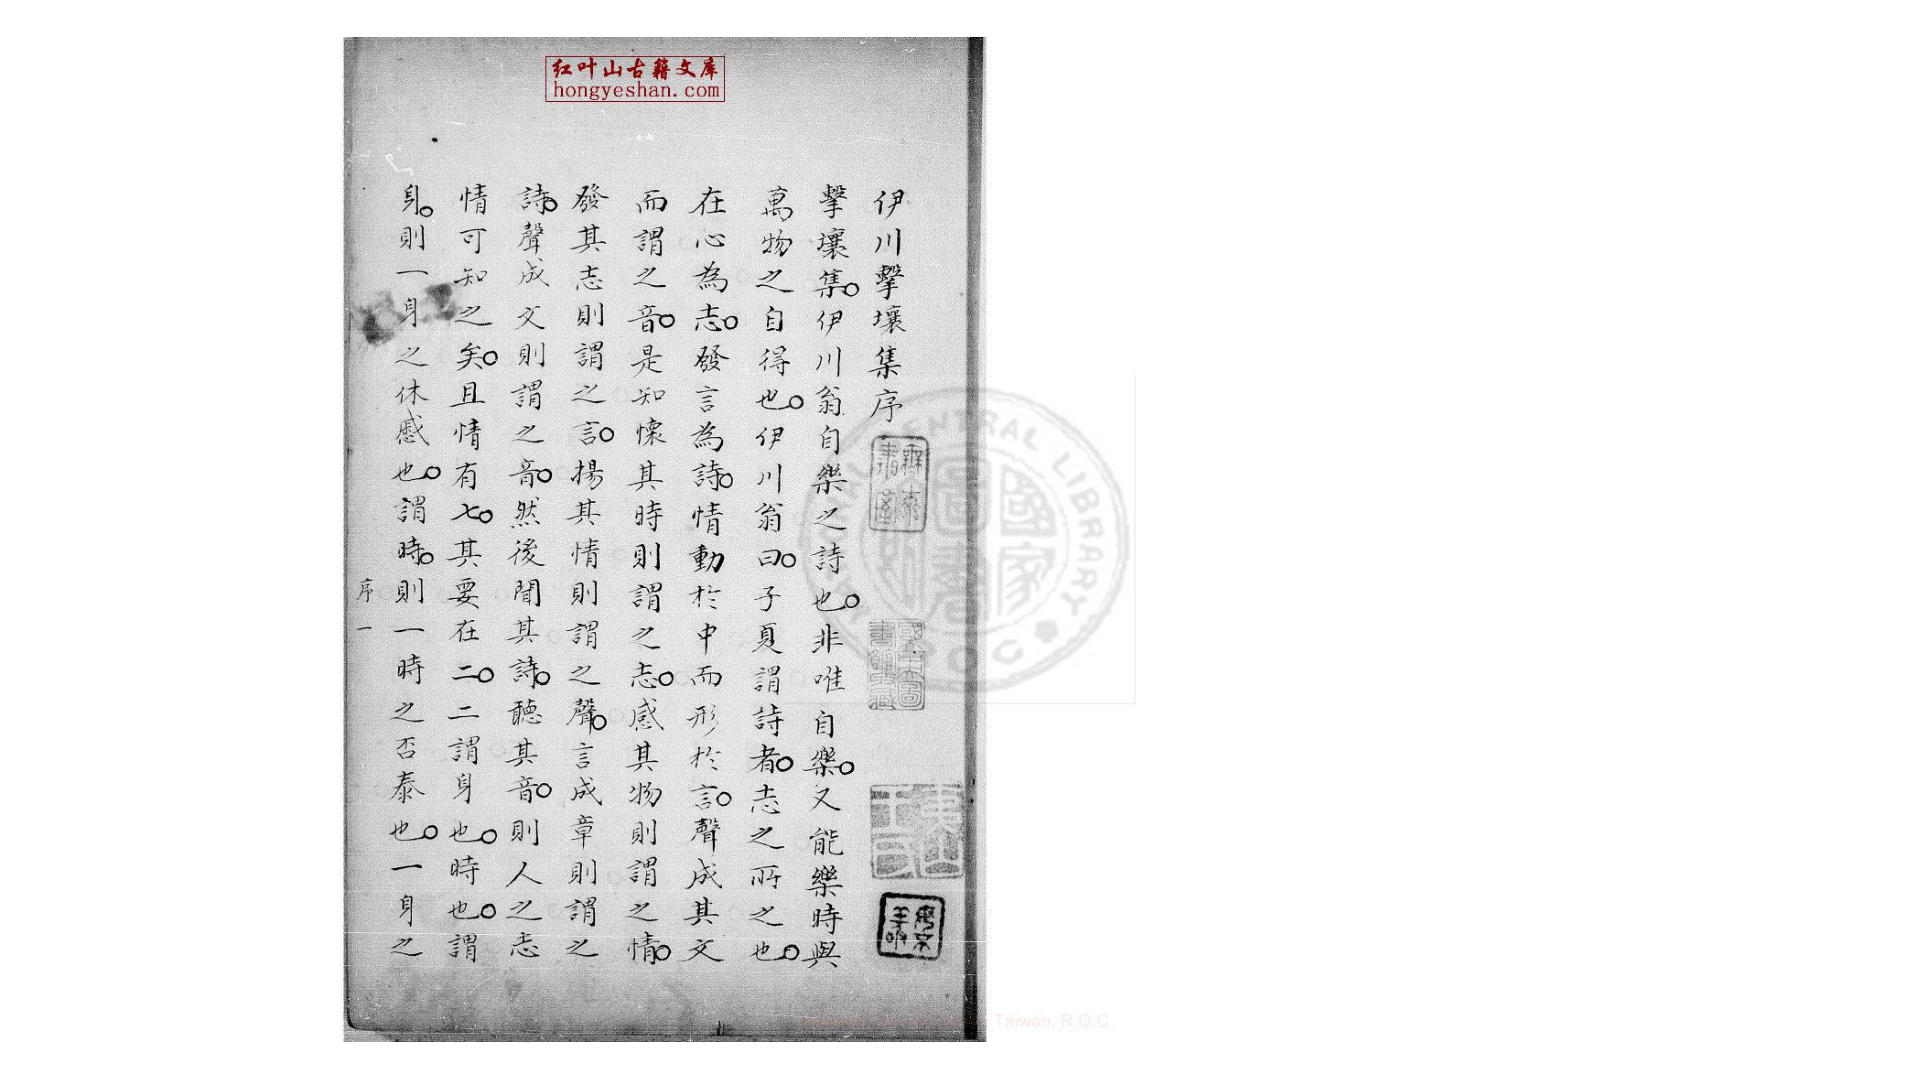 红叶山古籍文库
hongyeshan.com
伊川擊壤集序
擊壤集。伊川翁自樂之詩也。非唯自樂。又能樂時與
萬物之自得也。伊川翁曰。子夏謂詩者。志之所之也。
在心為志。發言為詩。情動於中而形於言。聲成其文
而謂之音。是知懷其時則謂之志。感其物則謂之情。
發其志則謂之言。揚其情則謂之聲。言成章則謂之
詩。聲成文則謂之音。然後聞其詩。聽其音。則人之志
情可知之矣。且情有七。其要在二。二謂身也。時也。謂
身。則一身之休慼也。謂時。則一時之否泰也。一身之
序一
國家圖書館
CENTRAL LIBRARY
R.O.C.
Taiwan, R.O.C.